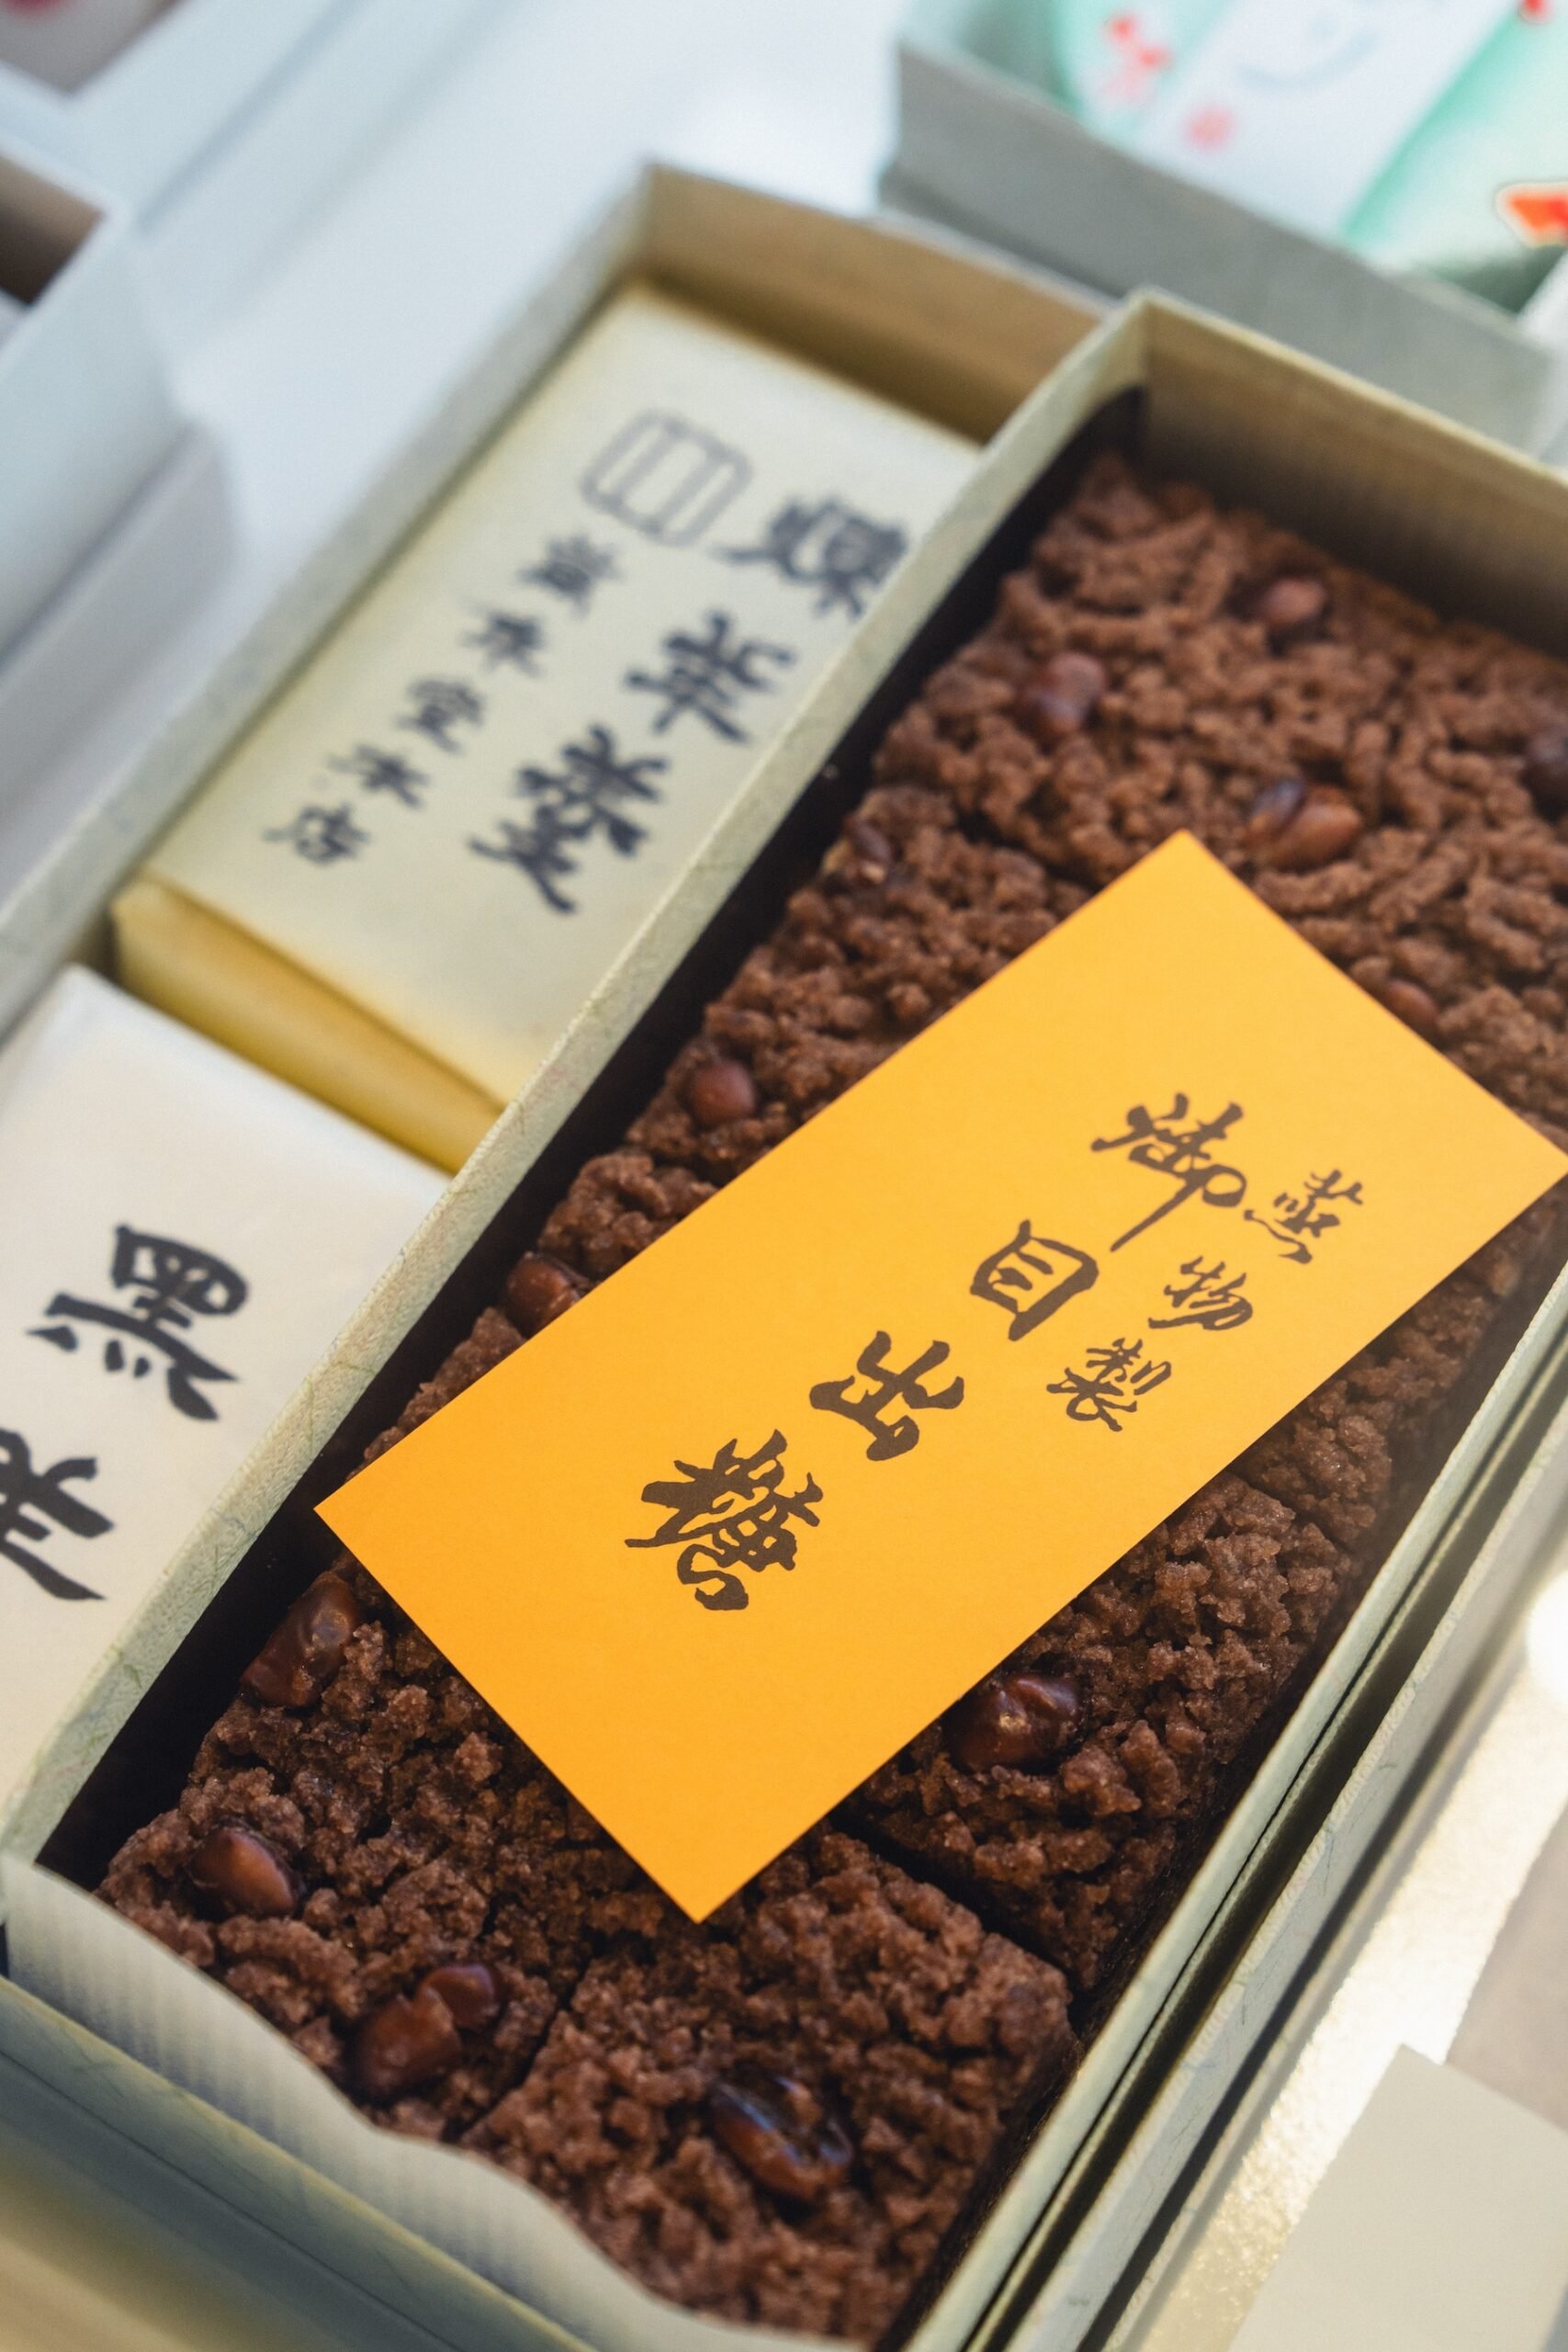 蒸物製
御目出糖
煉羊羹
萬年堂本店
黑